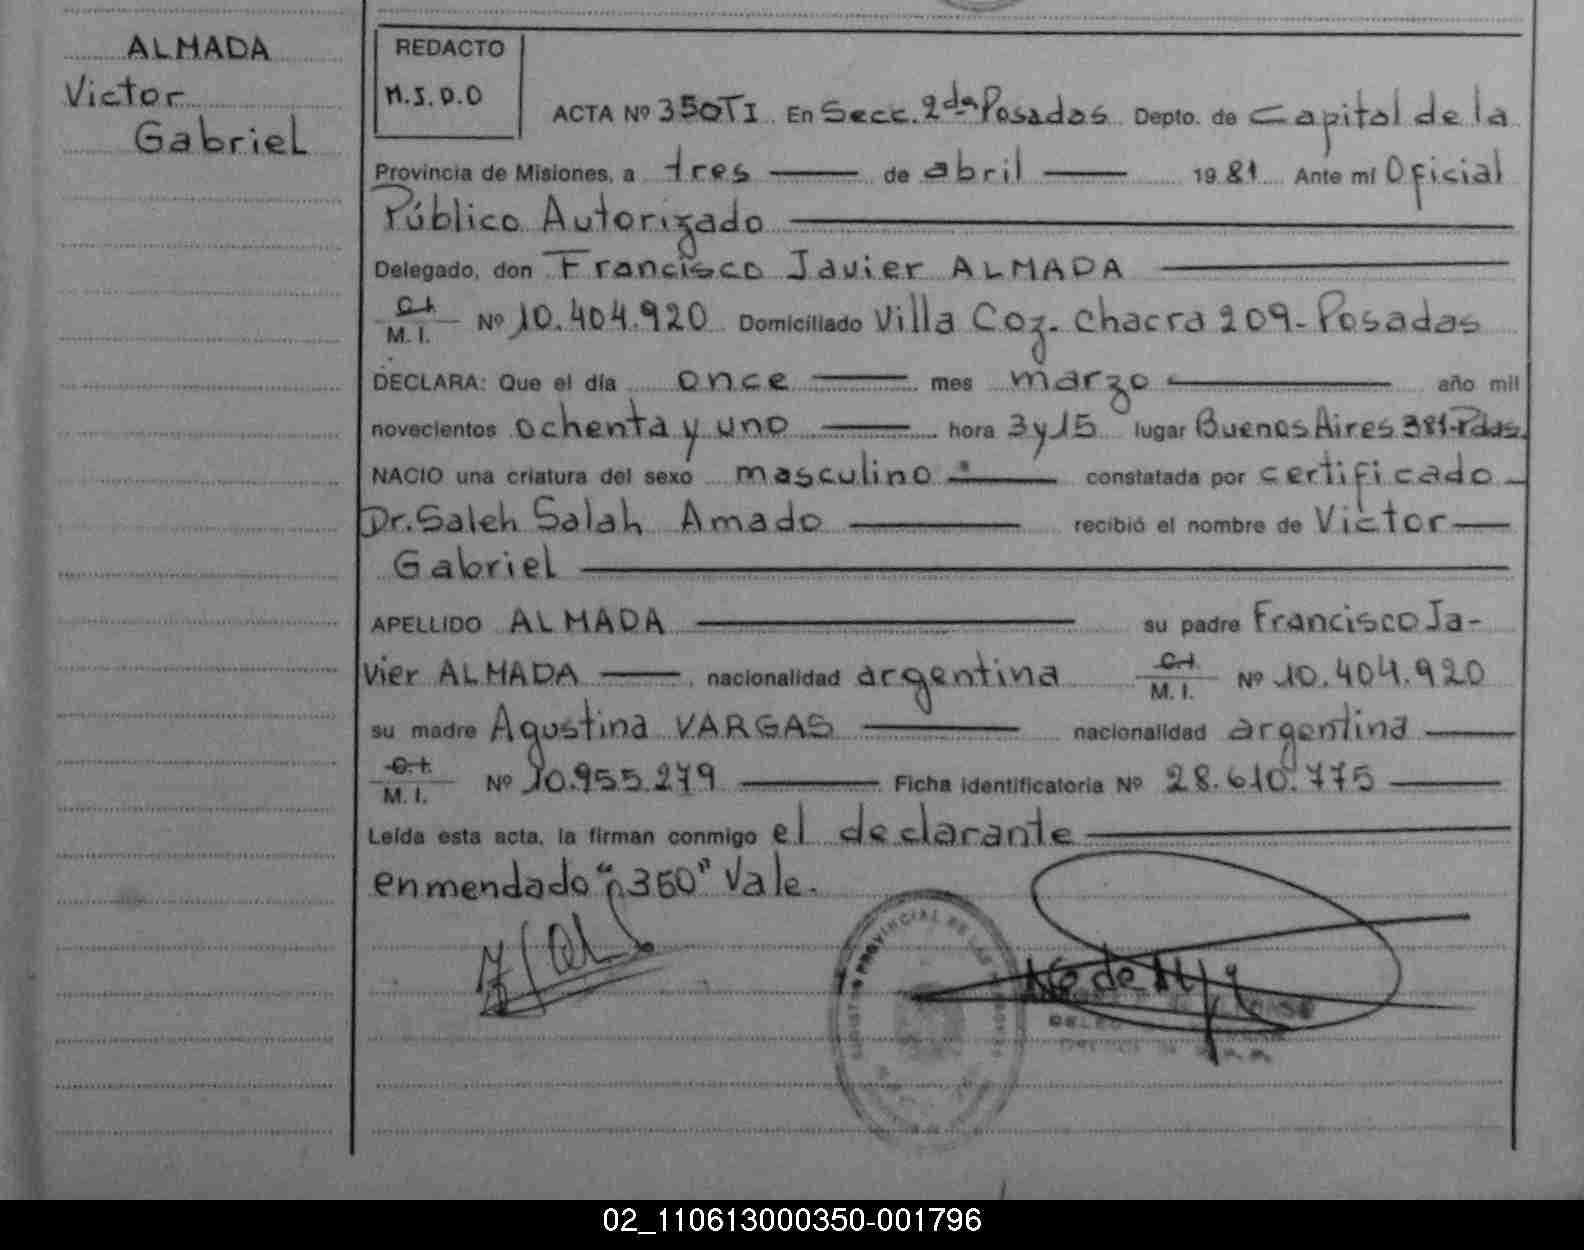 ALMADA
Victor
Gabriel
REDACTO
M.S.D.O
ACTA Nº 350TI En Secc. 2da Posadas Depto. de Capital de la
Provincia de Misiones, a tres de abril 1981 Ante mi Oficial
Público Autorizado
Delegado, don Francisco Javier ALMADA
C.I.
M. I. Nº 10.404.920 Domiciliado Villa Coz. Chacra 209-Posadas
DECLARA: Que el día once mes marzo año mil
novecientos ochenta y uno hora 3 y 15 lugar Buenos Aires 381-Pdas.
NACIO una criatura del sexo masculino constatada por certificado
Dr. Saleh Salah Amado recibió el nombre de Victor
Gabriel
APELLIDO ALMADA su padre Francisco Ja-
vier ALMADA nacionalidad argentina C.I. M. I. Nº 10.404.920
su madre Agustina VARGAS nacionalidad argentina
C.I.
M. I. Nº 10.955.279 Ficha identificatoria Nº 28.610.775
Leída esta acta, la firman conmigo el declarante
enmendado "350" Vale.
PROVINCIAL DE LAS
02_110613000350-001796